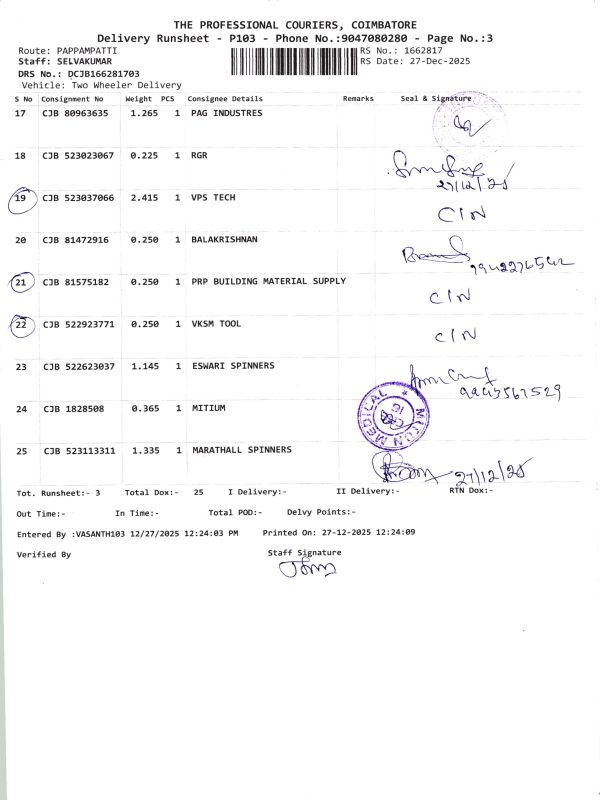 THE PROFESSIONAL COURIERS, COIMBATORE
Delivery Runsheet - P103 - Phone No.:9047080280 - Page No.:3
Route: PAPPAMPATTI RS No.: 1662817
Staff: SELVAKUMAR RS Date: 27-Dec-2025
DRS No.: DCJB166281703
Vehicle: Two Wheeler Delivery
S No Consignment No Weight PCS Consignee Details Remarks Seal & Signature
17 CJB 80963635 1.265 1 PAG INDUSTRES
18 CJB 523023067 0.225 1 RGR
27/12/25
19 CJB 523037066 2.415 1 VPS TECH
C/N
20 CJB 81472916 0.250 1 BALAKRISHNAN
9942276542
21 CJB 81575182 0.250 1 PRP BUILDING MATERIAL SUPPLY
C/N
22 CJB 522923771 0.250 1 VKSM TOOL
C/N
23 CJB 522623037 1.145 1 ESWARI SPINNERS
9943567529
24 CJB 1828508 0.365 1 MITIUM
MEDICAL
25 CJB 523113311 1.335 1 MARATHALL SPINNERS
27/12/25
Tot. Runsheet:- 3 Total Dox:- 25 I Delivery:- II Delivery:- RTN Dox:-
Out Time:- In Time:- Total POD:- Delvy Points:-
Entered By :VASANTH103 12/27/2025 12:24:03 PM Printed On: 27-12-2025 12:24:09
Verified By Staff Signature